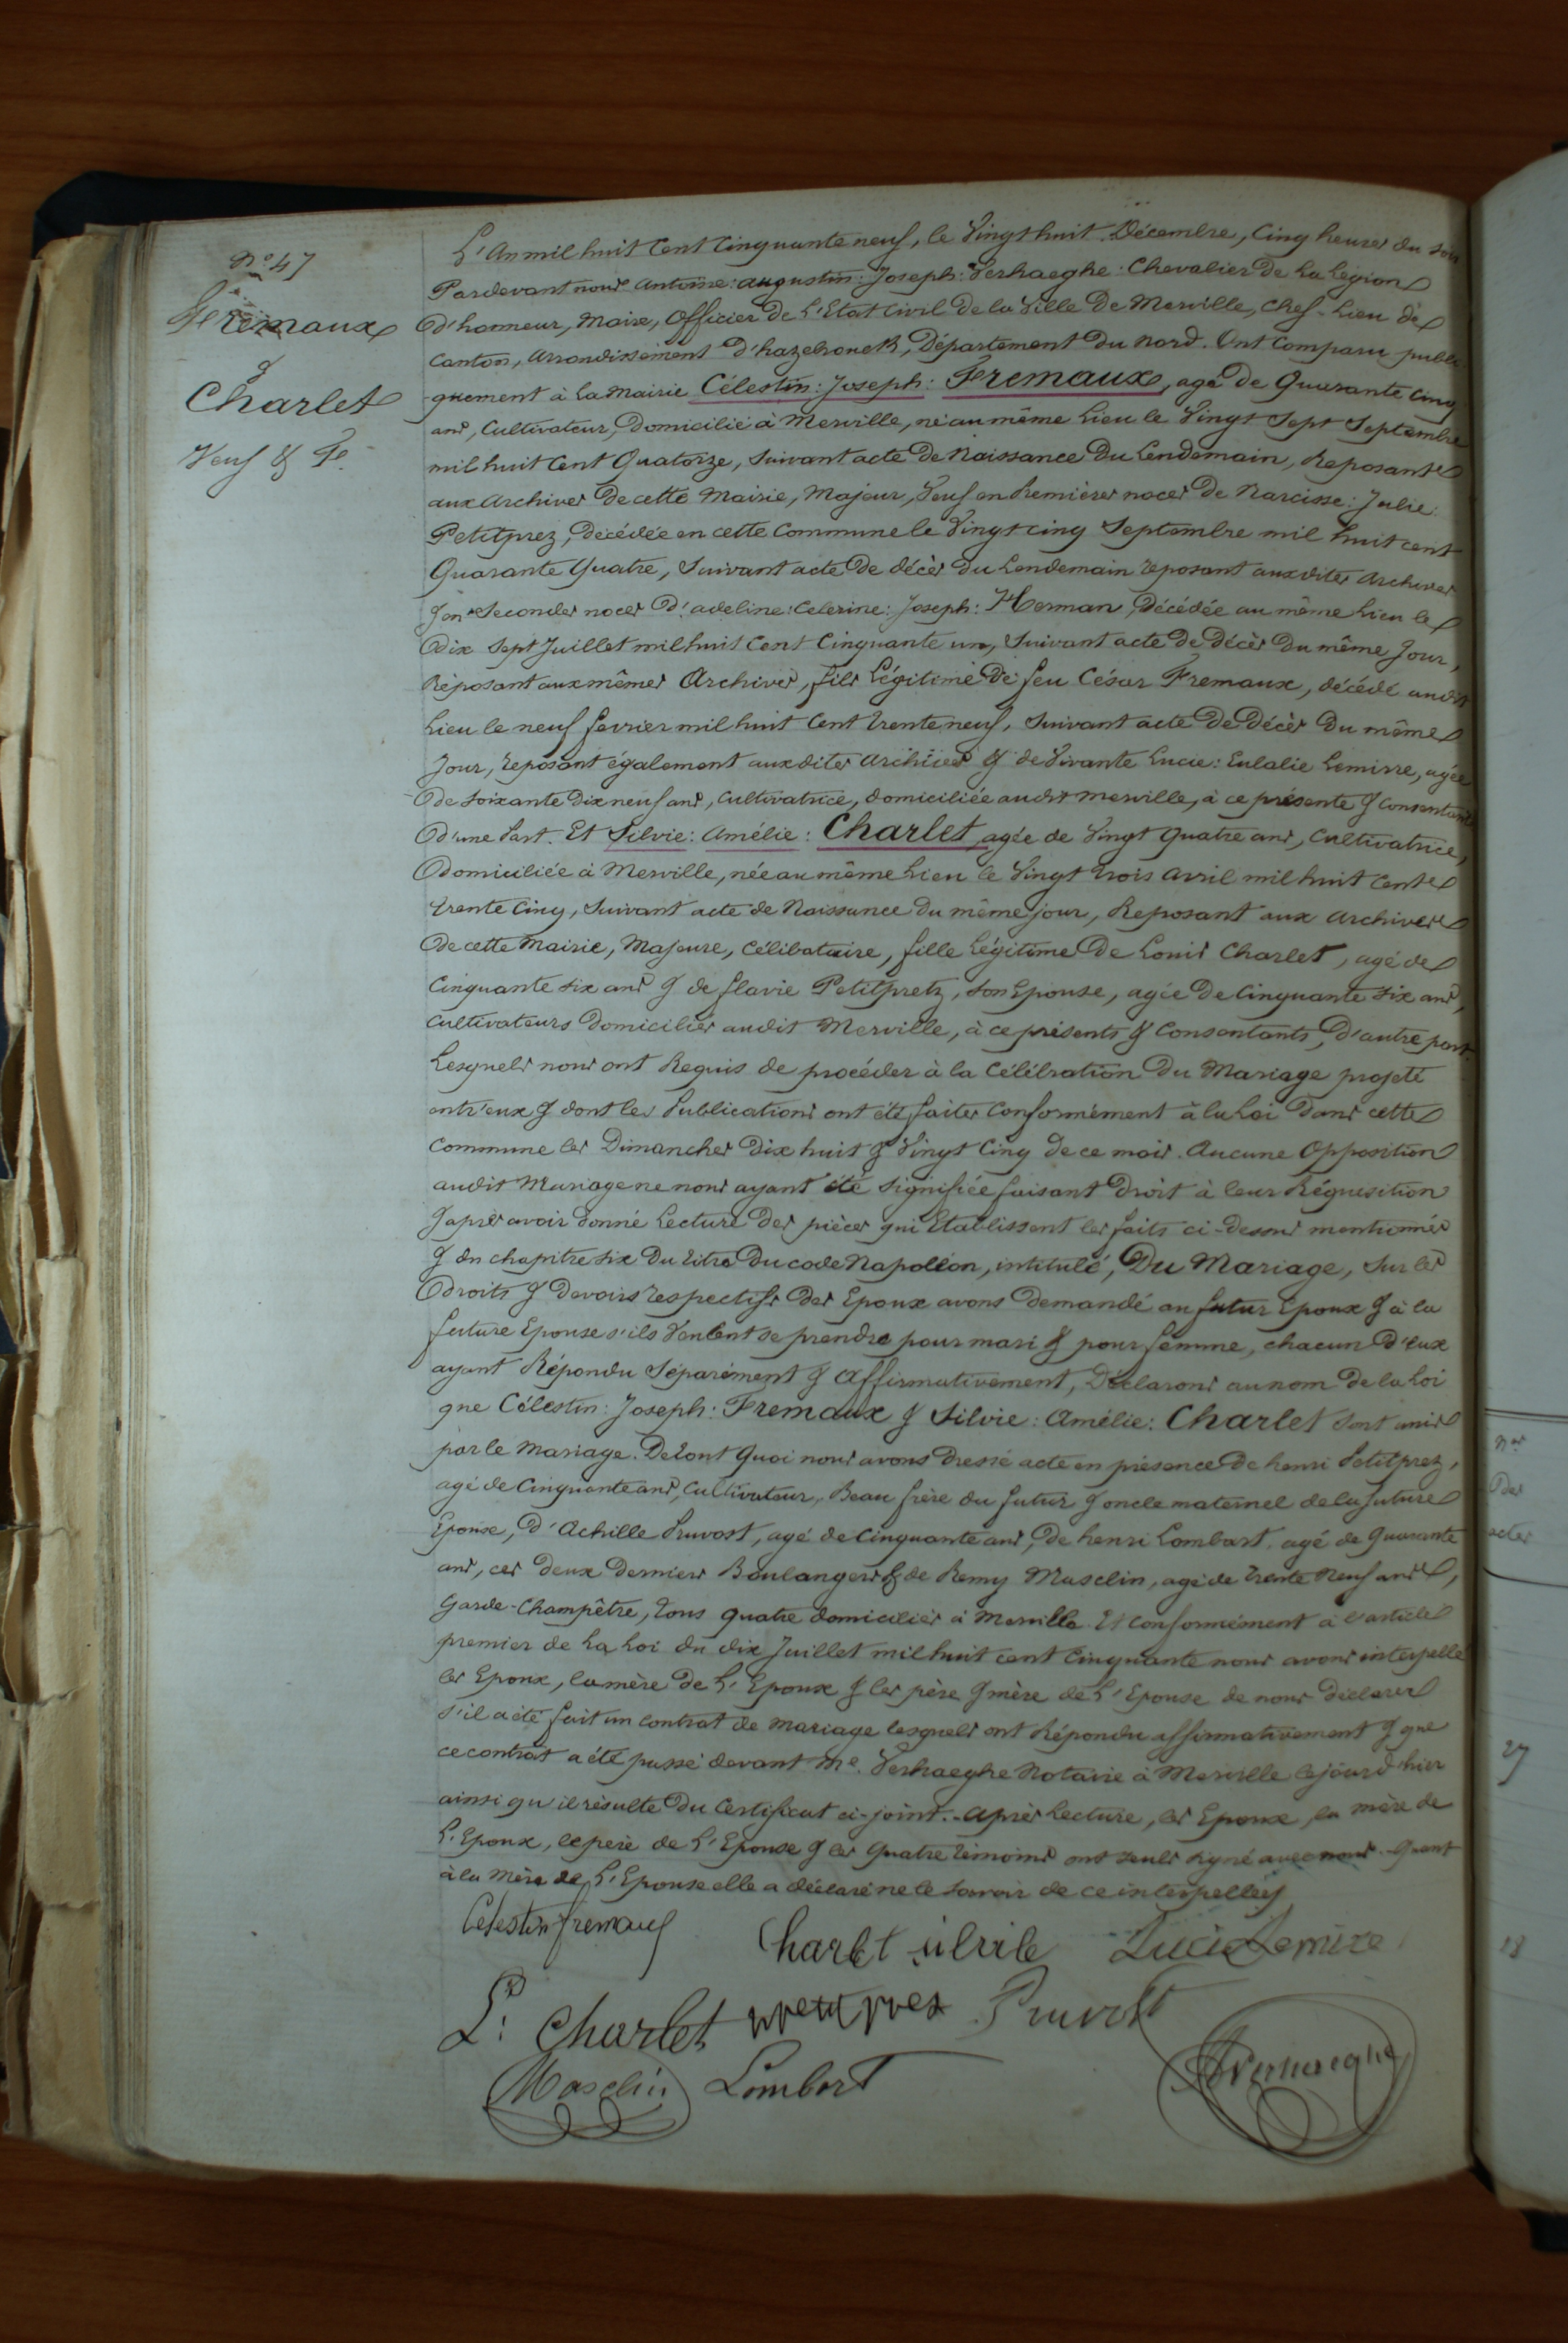 N° 47
Fremaux
&
Charlet
Veuf & Fe
L'An mil huit Cent Cinquante neuf, le Vingt huit Décembre, Cinq heures du soir
Pardevant nous Antoine: augustin: Joseph: Verhaeghe: Chevalier de La Légion
d'honneur, Maire, Officier de l'Etat Civil de la Ville De Merville, Chef-Lieu de
Canton, Arrondissement d'hazebrouck, Département du Nord. Ont Comparu publi
quement à La Mairie Célestin: Joseph: Fremaux, agé de Quarante Cinq
ans, Cultivateur, Domicilié à Merville, né au même Lieu le Vingt Sept Septembre
mil huit Cent Quatorze, suivant acte de Naissance du Lendemain, Reposant
aux Archives de cette Mairie, Majeur, Veuf en Premières noces de Narcisse: Julie:
Petitprez, Décédée en cette Commune le Vingt cinq Septembre mil huit cent
Quarante Quatre, Suivant acte de décès du Lendemain reposant auxdites Archives
& en Secondes noces d'adeline: Celerine: Joseph: Herman, Décédée au même Lieu le
Dix Sept Juillet mil huit Cent Cinquante un, Suivant acte de Décès du même Jour,
Réposant aux mêmes Archives, fils Légitime de feu César Fremaux, décédé audit
Lieu le neuf fevrier mil huit Cent trente neuf, Suivant acte de Décès du même
Jour, reposant également auxdites archives & de Vivante Lucie: Eulalie Lemirre, agée
de soixante Dix neuf ans, Cultivatrice, domiciliée audit Merville, à ce présente & Consentante
D'une Part. Et Silvie: Amélie: Charlet, agée de Vingt Quatre ans, Cultivatrice,
Domiciliée à Merville, née au même Lieu le Vingt trois avril mil huit Cent
trente Cinq, Suivant acte de Naissance du même jour, Reposant aux Archives
de cette Mairie, Majeure, Célibataire, fille Légitime de Louis Charlet, agé de
Cinquante six ans & de flavie Petitpretz, son Epouse, agée de Cinquante six ans,
Cultivateurs Domiciliés audit Merville, à ce présents & Consentants, d'autre part.
Lesquels nous ont Requis de procéder à la Célébration du Mariage projeté
entr'eux & dont les Publications ont été faites Conformément à la Loi dans cette
Commune les Dimanches Dix huit & Vingt Cinq de ce mois. Aucune Opposition
audit Mariage ne nous ayant été signifiée faisant droit à leur Réquisition
& après avoir donné Lecture des pièces qui Etablissent les faits ci-dessus mentionnés
& du chapitre six du titre du code Napoléon, intitulé, Du Mariage, Sur les
droits & devoirs respectifs des Epoux avons demandé au futur Epoux & à la
future Epouse s'ils Veulent se prendre pour mari & pour femme, chacun d'eux
ayant Répondu Séparément & Affirmativement, Déclarons au nom de la Loi
que Célestin: Joseph: Fremaux & Silvie: Amélie: Charlet sont unis
par le Mariage. De tout Quoi nous avons Dressé acte en présence de henri Petitprez,
agé de Cinquante ans, Cultivateur, Beau frère du futur & oncle maternel de la future
Epouse, d'Achille Pruvost, agé de Cinquante ans, de henri Lombart, agé de Quarante
ans, ces deux derniers Boulangers & de Remy Masclin, agé de trente Neuf ans,
Garde-Champêtre, tous quatre domiciliés à Merville. Et Conformément à l'article
premier de La Loi du dix Juillet mil huit cent Cinquante nous avons interpellé
les Epoux, la mère de L'Epoux & les père & mère de L'Epouse de nous déclarer
s'il a été fait un contrat de mariage lesquels ont Répondu affirmativement & que
ce contrat a été passé devant Me. Verhaeghe Notaire à Merville le jourd'hier
ainsi qu'il résulte du Certificat ci-joint.- Après Lecture, les Epoux, la mère de
L'Epoux, le père de L'Epouse & les Quatre témoins ont seuls signé avec nous. Quant
à la Mère de L'Epouse elle a déclaré ne le savoir de ce interpellée
Celestin fremaux
Charlet silvie Lucie Lemire
L: Charlet petitprez Pruvost
Masclin Lombart AVerhaeghe
Nos
Des
actes
27
18